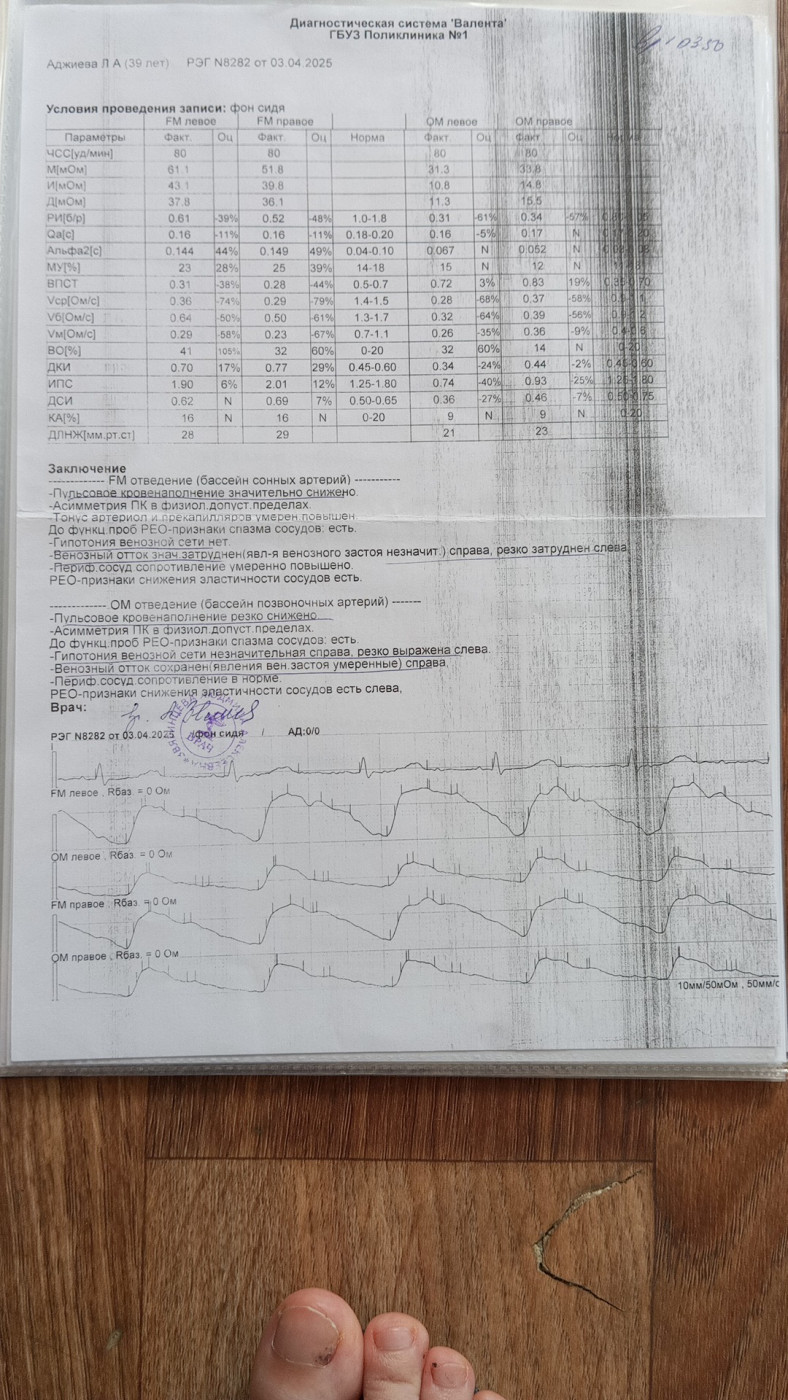 Диагностическая система 'Валента'
ГБУЗ Поликлиника №1
Аджиева Л А (39 лет) РЭГ N8282 от 03.04.2025
Условия проведения записи: фон сидя
FM левое FM правое OM левое OM правое
Параметры Факт. Оц Факт. Оц Норма Факт. Оц Факт Оц
ЧСС[уд/мин] 80 80 80 80
М[мОм] 61.1 51.8 31.3 33.8
И[мОм] 43.1 39.8 10.8 14.8
Д[мОм] 37.8 36.1 11.3 15.5
РИ[б/р] 0.61 -39% 0.52 -48% 1.0-1.8 0.31 -61% 0.34 -57%
Qa[c] 0.16 -11% 0.16 -11% 0.18-0.20 0.16 -5% 0.17 N
Альфа2[с] 0.144 44% 0.149 49% 0.04-0.10 0.067 N 0.052 N
МУ[%] 23 28% 25 39% 14-18 15 N 12 N
ВПСТ 0.31 -38% 0.28 -44% 0.5-0.7 0.72 3% 0.83 19%
Vср[Ом/с] 0.36 -74% 0.29 -79% 1.4-1.5 0.28 -68% 0.37 -58%
Vб[Ом/с] 0.64 -50% 0.50 -61% 1.3-1.7 0.32 -64% 0.39 -56%
Vм[Ом/с] 0.29 -58% 0.23 -67% 0.7-1.1 0.26 -35% 0.36 -9%
ВО[%] 41 105% 32 60% 0-20 32 60% 14 N 0-20
ДКИ 0.70 17% 0.77 29% 0.45-0.60 0.34 -24% 0.44 -2%
ИПС 1.90 6% 2.01 12% 1.25-1.80 0.74 -40% 0.93 -25%
ДСИ 0.62 N 0.69 7% 0.50-0.65 0.36 -27% 0.46 -7%
КА[%] 16 N 16 N 0-20 9 N 9 N 0-20
ДЛНЖ[мм.рт.ст] 28 29 21 23
Заключение
------------- FM отведение (бассейн сонных артерий) -----------
-Пульсовое кровенаполнение значительно снижено.
-Асимметрия ПК в физиол.допуст.пределах.
-Тонус артериол и прекапилляров умерен.повышен.
До функц.проб РЕО-признаки спазма сосудов: есть.
-Гипотония венозной сети нет.
-Венозный отток знач.затруднен(явл-я венозного застоя незначит.) справа, резко затруднен слева,
-Периф.сосуд сопротивление умеренно повышено.
РЕО-признаки снижения эластичности сосудов есть.
------------- OM отведение (бассейн позвоночных артерий) -------
-Пульсовое кровенаполнение резко снижено.
-Асимметрия ПК в физиол.допуст.пределах.
До функц.проб РЕО-признаки спазма сосудов: есть.
-Гипотония венозной сети незначительная справа, резко выражена слева.
-Венозный отток сохранен(явления вен.застоя умеренные) справа,
-Периф.сосуд.сопротивление в норме.
РЕО-признаки снижения эластичности сосудов есть слева,
Врач:
ВРАЧ
РЭГ N8282 от 03.04.2025 /фон сидя / АД:0/0
FM левое , Rбаз. = 0 Ом
OM левое , Rбаз. = 0 Ом
FM правое , Rбаз. = 0 Ом
OM правое , Rбаз. = 0 Ом
10мм/50мОм , 50мм/с